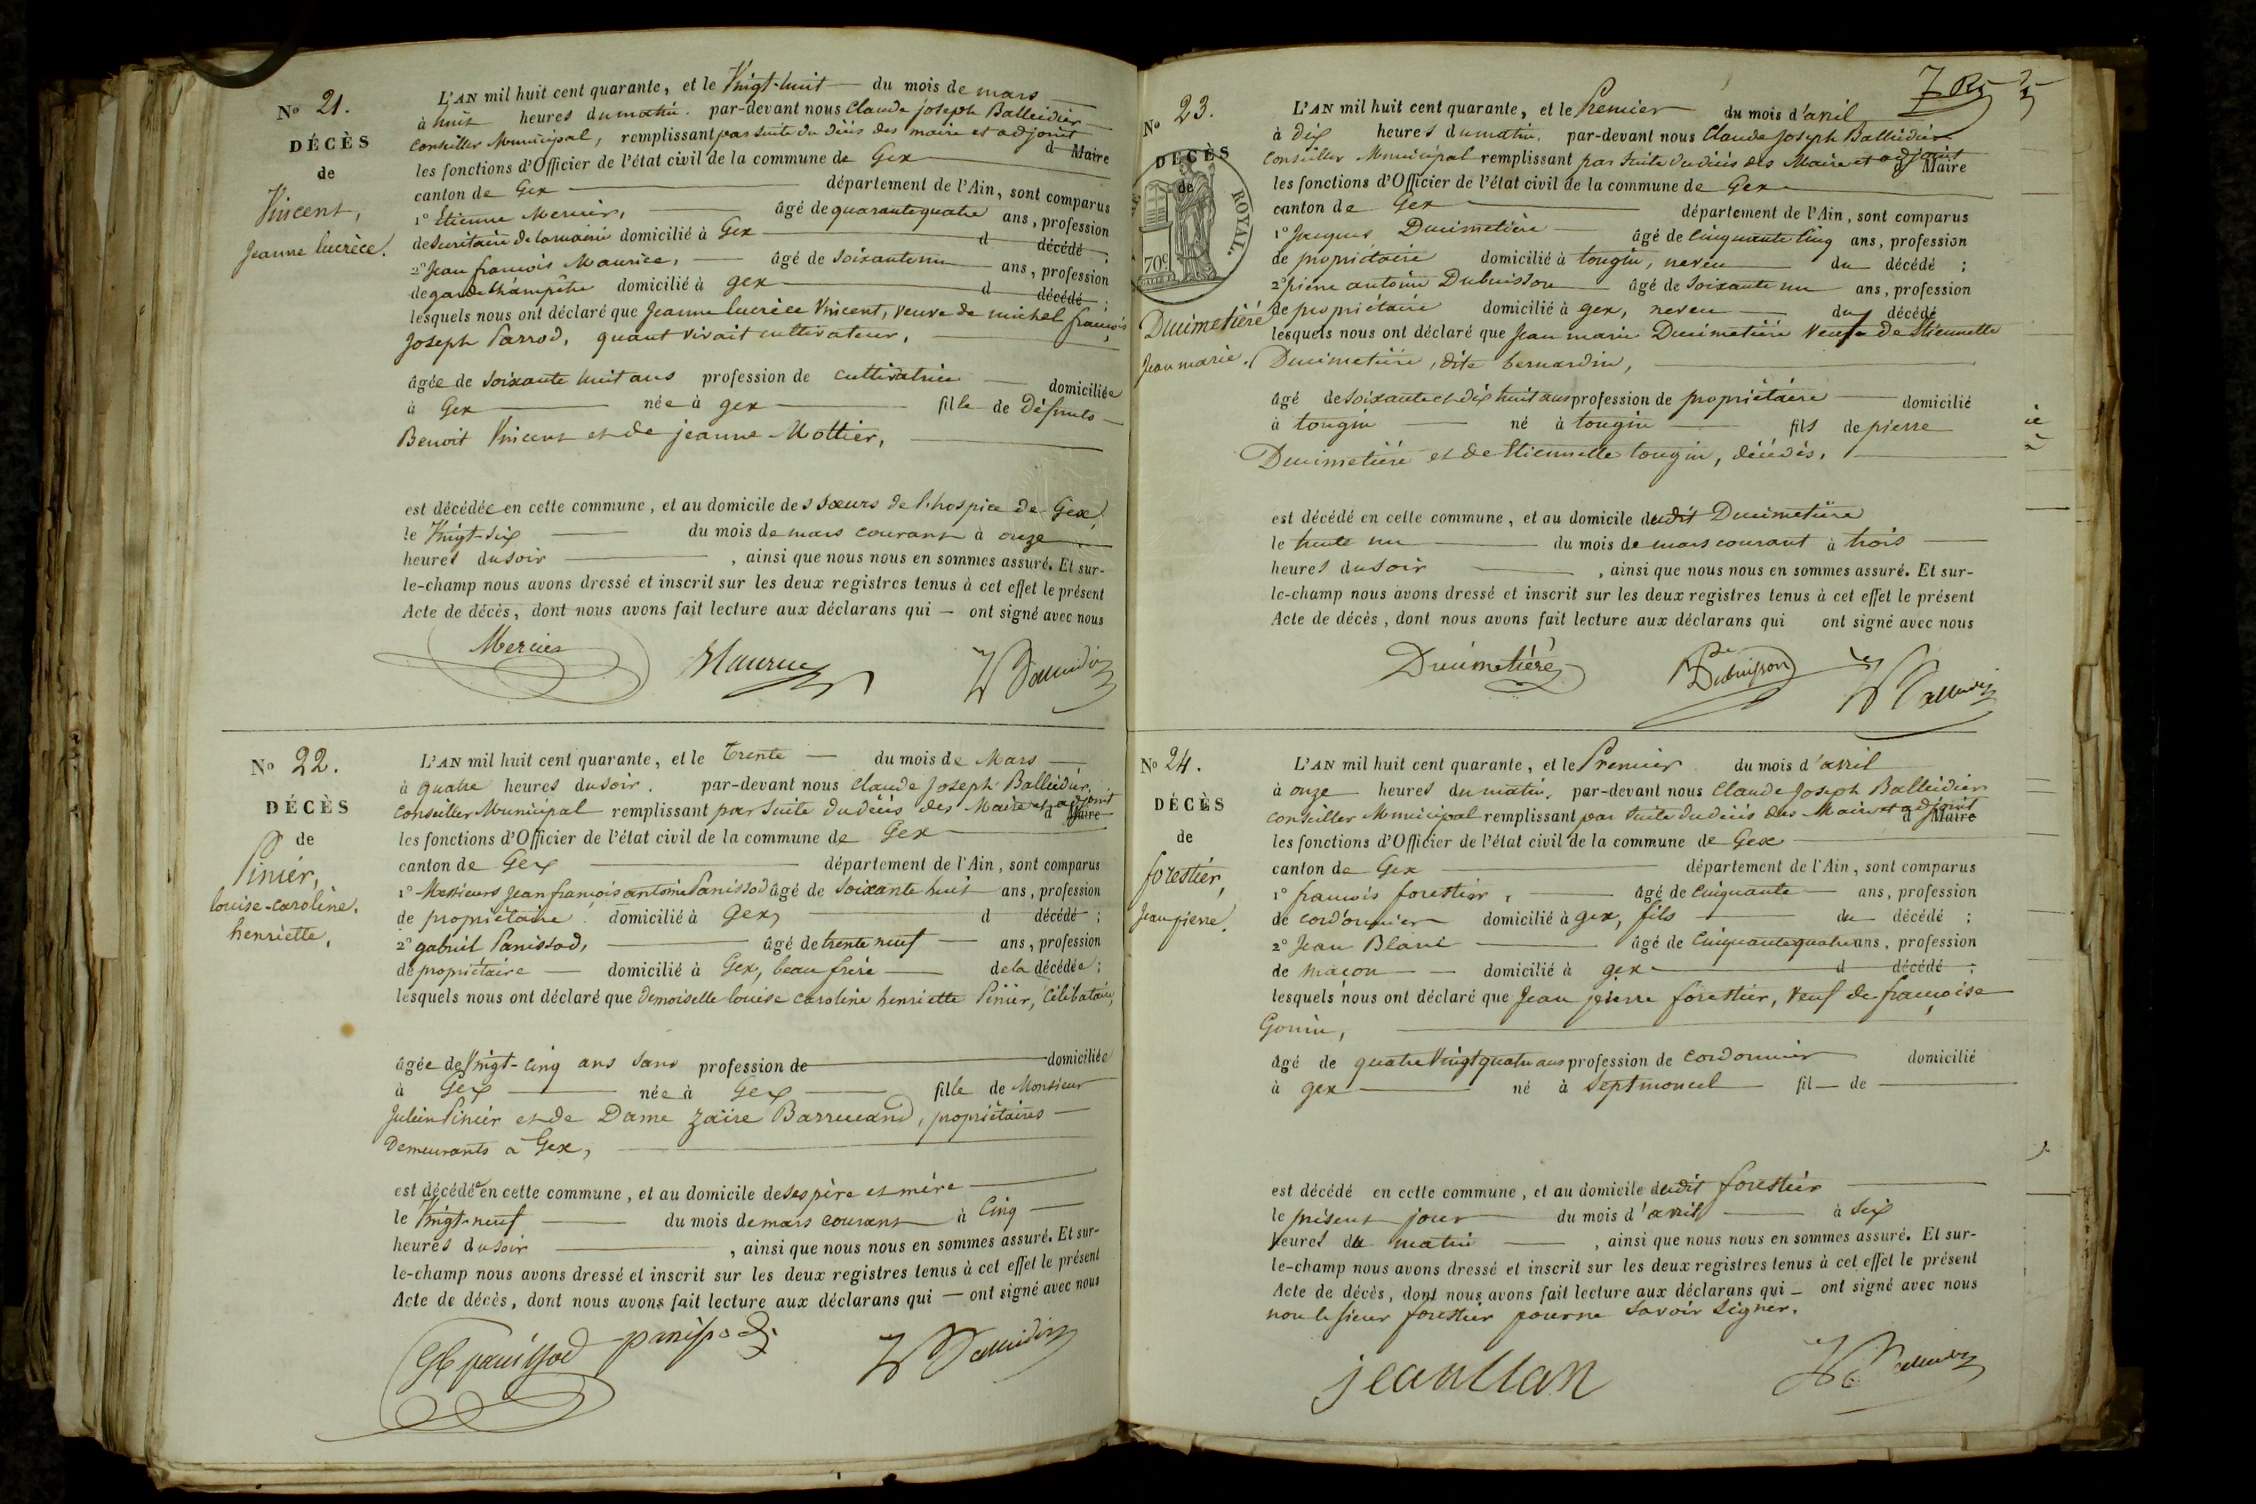 N° 21.
DÉCÈS
de
Vincent,
Jeanne lucrèce.
L'AN mil huit cent quarante, et le Vingt-huit du mois de mars
à huit heures du matin. par-devant nous Claude joseph Balleidier
Conseiller Municipal, remplissant par suite du décès des maire et adjoint
d Maire
les fonctions d'Officier de l'état civil de la commune de Gex
canton de Gex département de l'Ain, sont comparus
1° Étienne Mercier, âgé de quarante quatre ans, profession
de Secrétaire de la mairie domicilié à Gex d décédé ;
2° Jean françois Maurice, âgé de Soixante un ans, profession
de garde Champêtre domicilié à gex d décédé ;
lesquels nous ont déclaré que Jeanne lucrèce Vincent, veuve de michel françois
Joseph Parrod, quant vivait cultivateur,
âgée de Soixante huit ans profession de cultivatrice domiciliée
à Gex née à gex fille de Défunts
Benoit Vincent et de jeanne Mottier,
est décédée en cette commune, et au domicile des Sœurs de l'hospice de Gex,
le Vingt-six du mois de mars courant à onze
heures du soir , ainsi que nous nous en sommes assuré. Et sur-
le-champ nous avons dressé et inscrit sur les deux registres tenus à cet effet le présent
Acte de décès, dont nous avons fait lecture aux déclarans qui — ont signé avec nous
Mercier Maurice Balleidier
N° 22.
DÉCÈS
de
Pinier,
louise-caroline,
henriette,
L'AN mil huit cent quarante, et le trente du mois de Mars
à quatre heures du soir. par-devant nous Claude Joseph Balleidier,
Conseiller Municipal remplissant par Suite du décès des Maire et adjoint
d Maire
les fonctions d'Officier de l'état civil de la commune de Gex
canton de Gex département de l'Ain, sont comparus
1° Messieurs Jean françois antoine Panissod âgé de Soixante huit ans, profession
de propriétaire domicilié à Gex, d décédé ;
2° gabriel Panissod, âgé de trente neuf ans, profession
de propriétaire domicilié à Gex, beau frère de la décédée ;
lesquels nous ont déclaré que demoiselle louise caroline henriette Pinier, Célibataire,
âgée de Vingt-cinq ans Sans profession de domiciliée
à Gex née à Gex fille de Monsieur
Julien Pinier et de Dame Zaïre Barrucand, propriétaires
Demeurants à Gex,
est décédée en cette commune, et au domicile de ses père et mère
le Vingt-neuf du mois de mars courant à Cinq
heures du soir , ainsi que nous nous en sommes assuré. Et sur-
le-champ nous avons dressé et inscrit sur les deux registres tenus à cet effet le présent
Acte de décès, dont nous avons fait lecture aux déclarans qui — ont signé avec nous
panissod panissod Balleidier
N° 23.
DÉCÈS
de
ROYAL.
70c
Ducimetière
Jean marie.
L'AN mil huit cent quarante, et le Premier du mois d'avril
à dix heures du matin. par-devant nous Claude Joseph Balleidier
Conseiller Municipal remplissant par Suite du décès des Maire et adjoint
d Maire
les fonctions d'Officier de l'état civil de la commune de Gex
canton de Gex département de l'Ain, sont comparus
1° Jacques Ducimetière âgé de Cinquante Cinq ans, profession
de propriétaire domicilié à tougin, neveu du décédé ;
2° pierre antoine Dubuisson âgé de Soixante un ans, profession
de propriétaire domicilié à gex, neveu du décédé
lesquels nous ont déclaré que Jean marie Ducimetière Veuf de Etiennette
Ducimetière, dite bernardin,
âgé de Soixante et dix huit ans profession de propriétaire domicilié
à tougin né à tougin fils de pierre
Ducimetière et de Etiennette tougin, décédés,
est décédé en cette commune, et au domicile dudit Ducimetière
le trente un du mois de mars courant à trois
heures du soir , ainsi que nous nous en sommes assuré. Et sur-
le-champ nous avons dressé et inscrit sur les deux registres tenus à cet effet le présent
Acte de décès, dont nous avons fait lecture aux déclarans qui ont signé avec nous
Ducimetière Dubuisson Balleidier
N° 24.
DÉCÈS
de
forestier,
Jean pierre.
L'AN mil huit cent quarante, et le Premier du mois d'avril
à onze heures du matin. par-devant nous Claude Joseph Balleidier
Conseiller Municipal remplissant par Suite du décès des Maire et adjoint
d Maire
les fonctions d'Officier de l'état civil de la commune de Gex
canton de Gex département de l'Ain, sont comparus
1° françois forestier, âgé de Cinquante ans, profession
de cordonnier domicilié à gex, fils du décédé ;
2° Jean Blanc âgé de Cinquante quatre ans, profession
de maçon domicilié à gex d décédé ;
lesquels nous ont déclaré que Jean pierre forestier, Veuf de françoise
Gonin,
âgé de quatre Vingt quatre ans profession de cordonnier domicilié
à gex né à Septmoncel fil de
est décédé en cette commune, et au domicile dudit forestier
le présent jour du mois d'avril à Six
heures du matin , ainsi que nous nous en sommes assuré. Et sur-
le-champ nous avons dressé et inscrit sur les deux registres tenus à cet effet le présent
Acte de décès, dont nous avons fait lecture aux déclarans qui — ont signé avec nous
non le sieur forestier pour ne Savoir Signer.
jean Balleidier